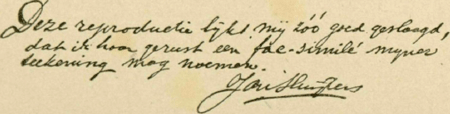 Deze reproductie lijkt mij zóó goed geslaagd,
dat ik haar gerust een fac-similé mijner
teekening mag noemen.
Jan Sluijters